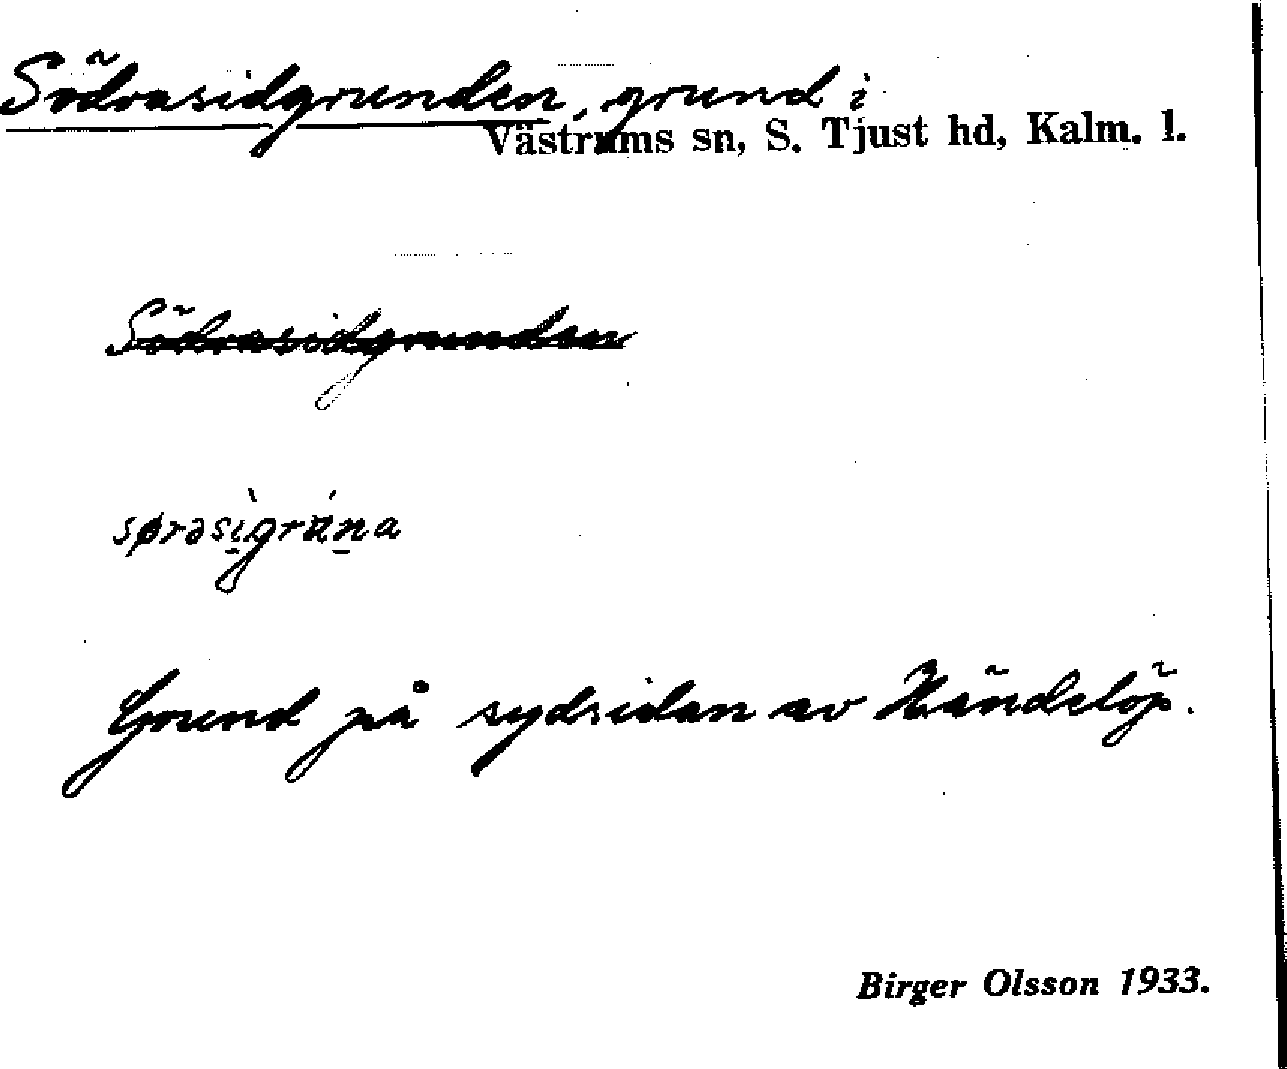 Södrasidgrunden, grund i
Västrums sn, S. Tjust hd, Kalm. l.
Södrasidgrunden
sørasìgrúna
Grund på sydsidan av Händelöp.
Birger Olsson 1933.